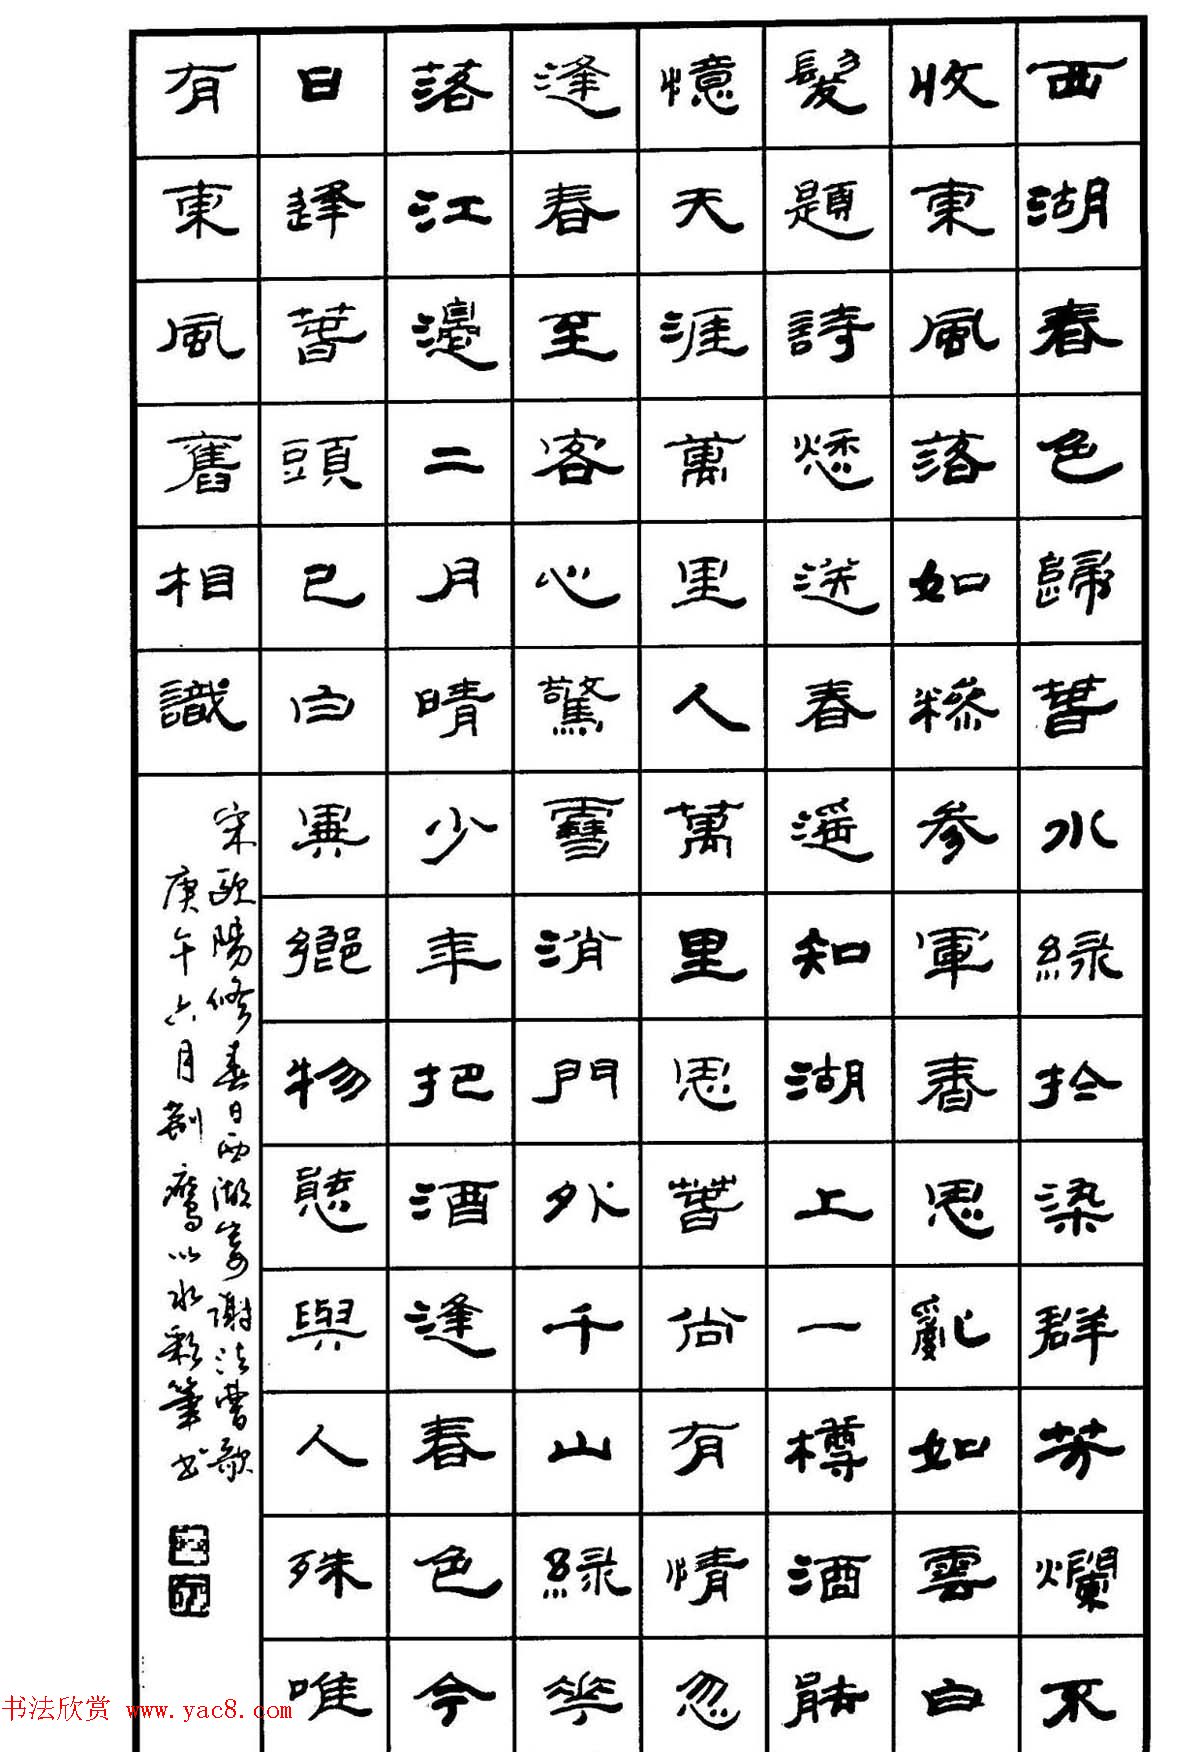 西湖春色歸春水綠扵染群芳爛不
收東風落如糝參軍春思亂如雲白
髮題詩愁送春遙知湖上一樽酒能
憶天涯萬里人萬里思春尚有情忽
逢春至客心驚雪消門外千山綠花
落江邊二月晴少年把酒逢春色今
日逢春頭已白異鄉物態與人殊唯
有東風舊相識
宋歐陽修春日西湖寄謝法曹歌
庚午六月荆鷹以水彩筆书
书法欣赏 www.yac8.com